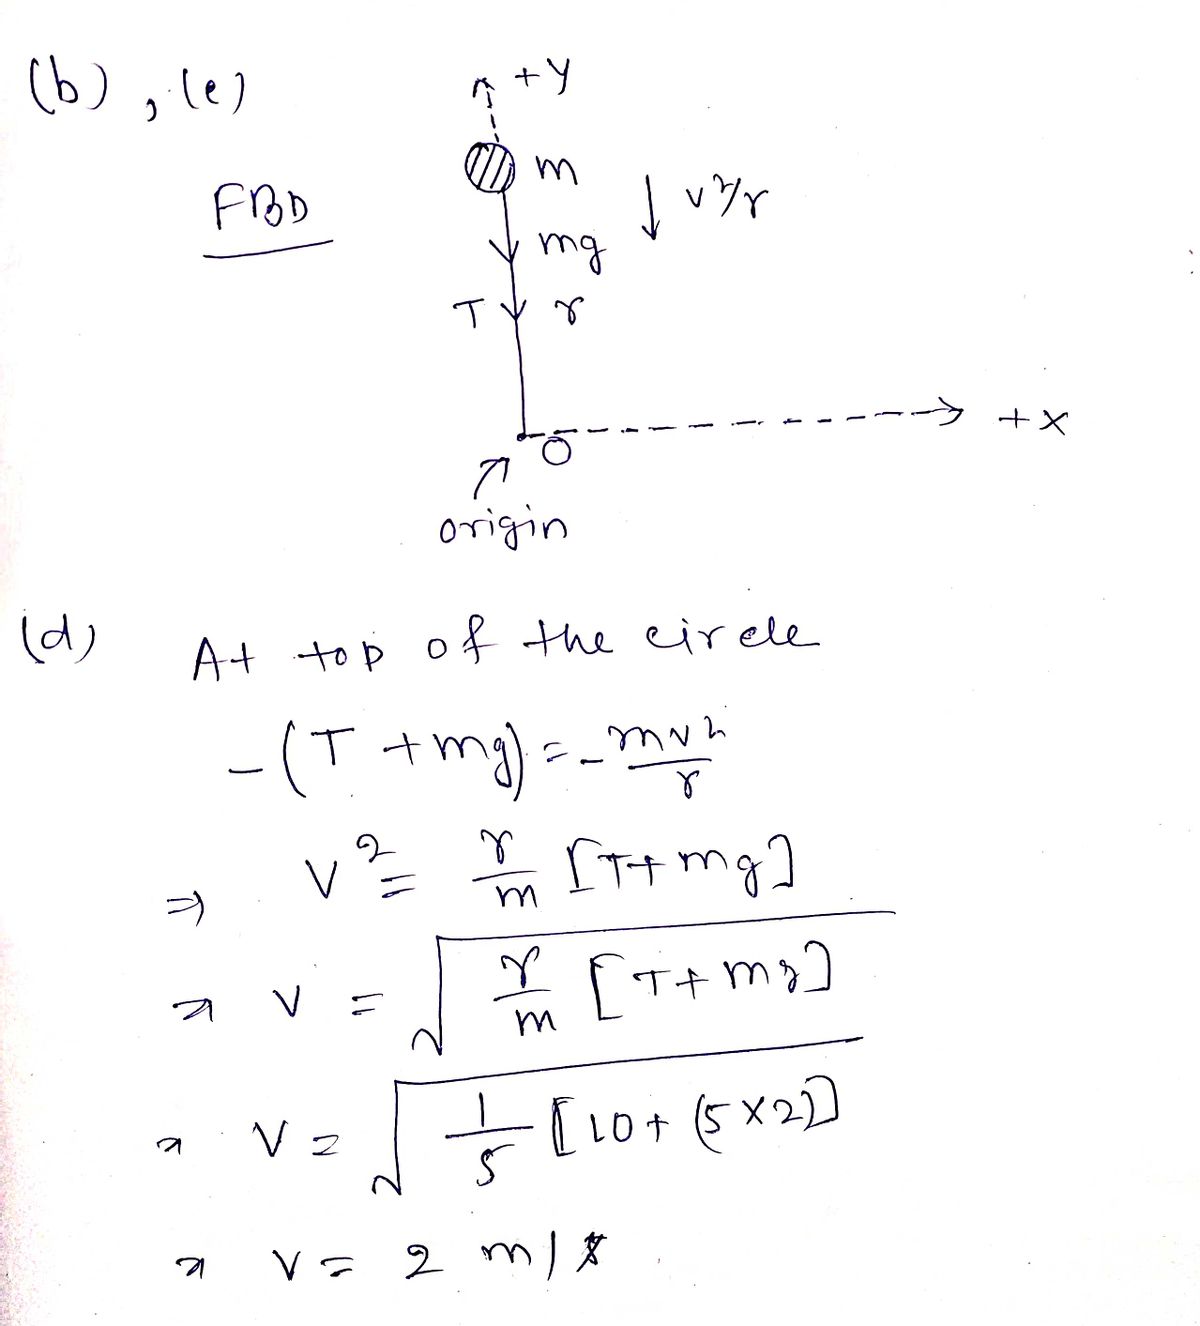 (b), (e)
+y
m
FBD
↓ v²/r
mg
T r
+x
O
origin
(d) At top of the circle
-(T + mg) = - mv²/r
⇒ v² = r/m [T + mg]
⇒ v = √(r/m [T + mg])
⇒ v = √(1/5 [10 + (5×2)])
⇒ v = 2 m/s